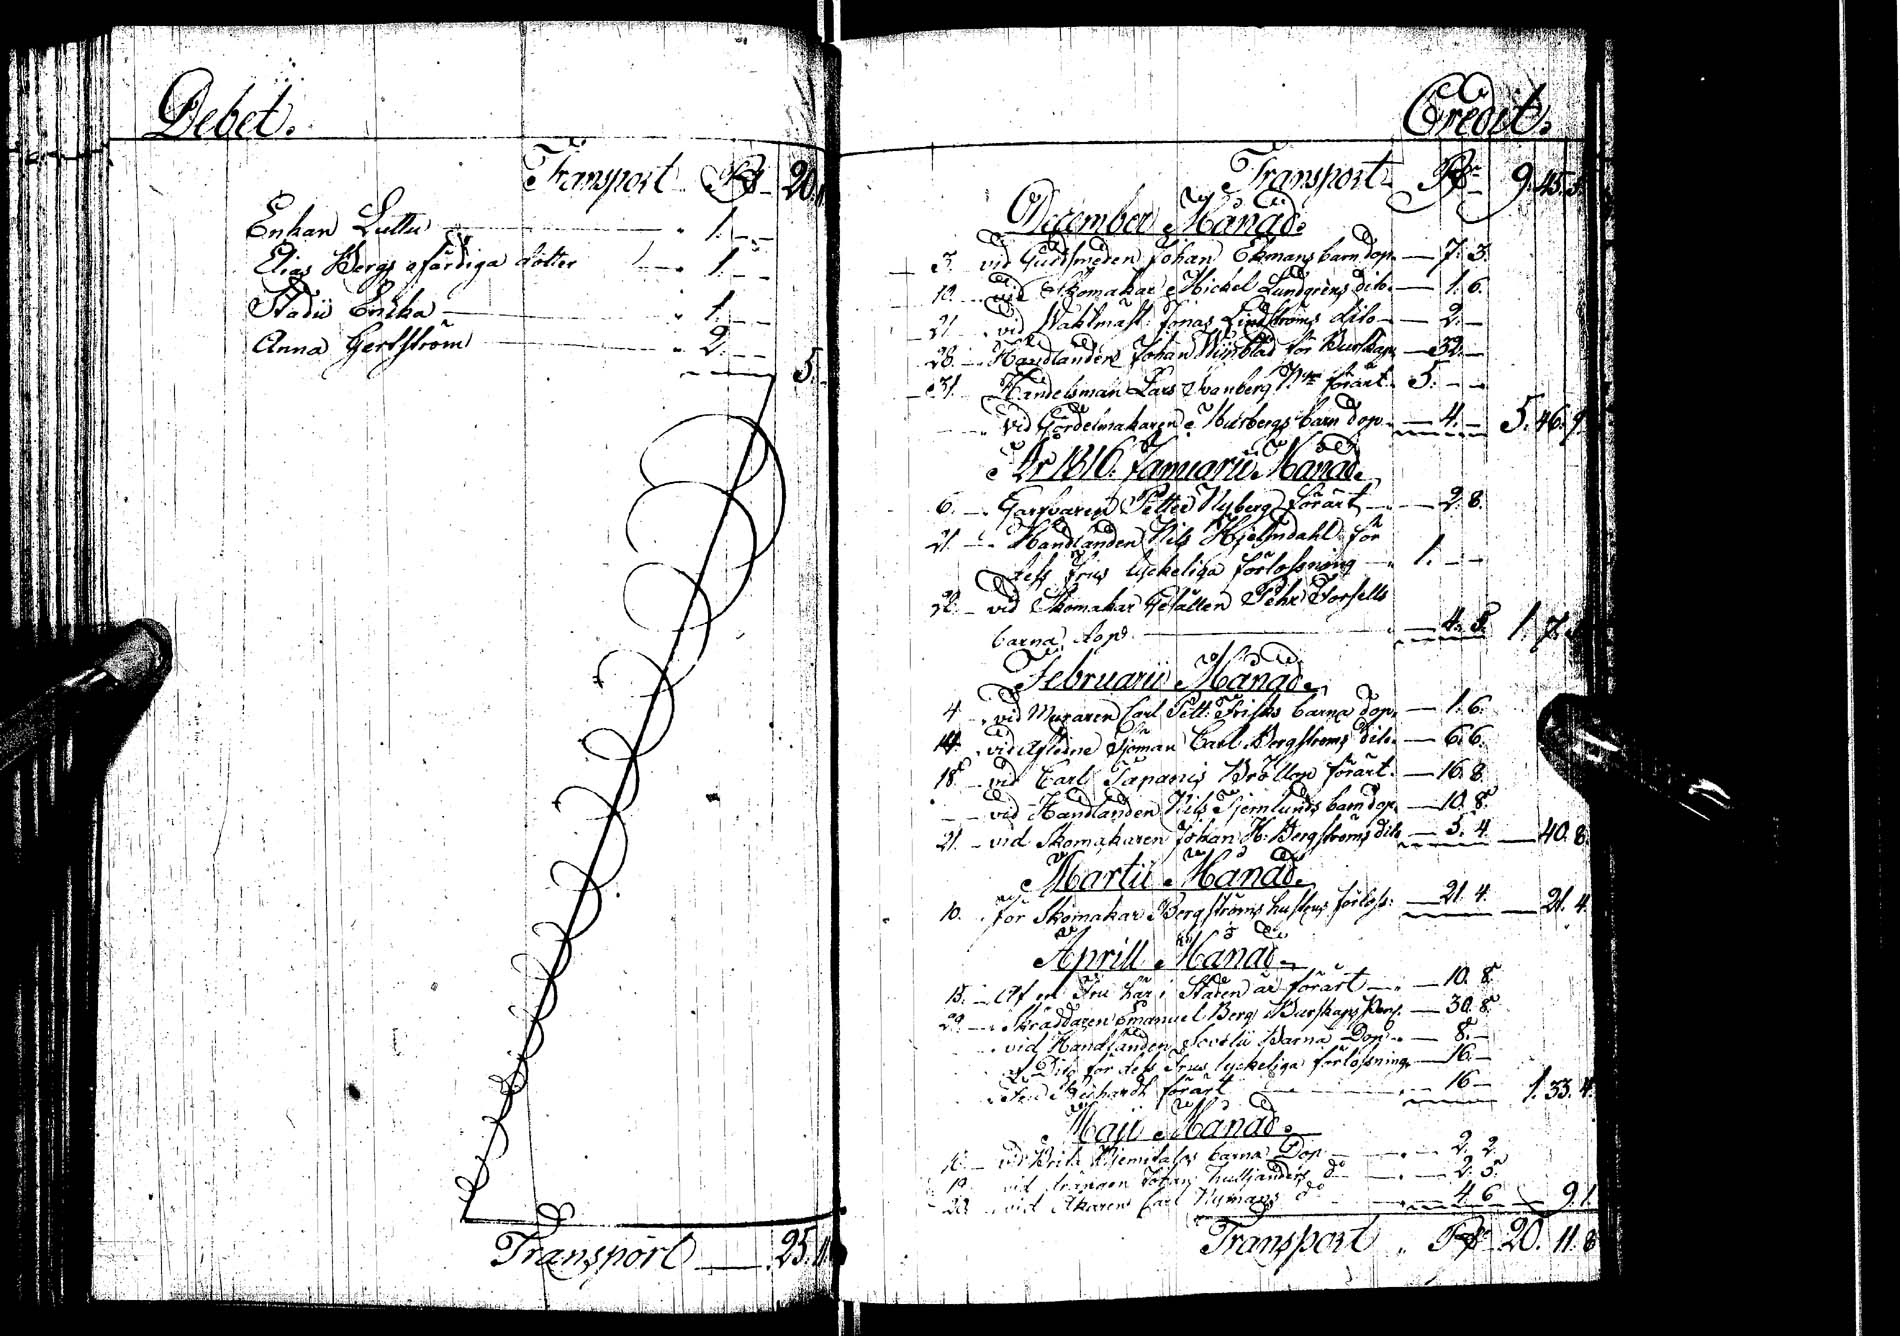 Debet.
Transport Rd 20.11
Enkan Luttu 1. – –
Elias Bergs ofärdiga dotter 1. – –
Stadii Enkha 1. – –
Anna Gertström 2. – –
5.
Transport 25.11
Credit.
Transport Rd 9.45.5
December Månad.
3. vid Guldsmeden Johan Ekmans barndop 7. 3.
10. vid Skomakar Michel Lundgrens dito 1. 6.
21. vid Waktmäst. Jonas Lindströms dito 2. –
28. Handlanden Johan Wijnblad för Burskap 32. –
31. Handelsman Lars Svanberg förärt 5. – –
vid Gördelmakaren barndop 4. – 5. 46. 9
År 1816. Januarii Månad.
6. Garfvaren Petter Nyberg förärt 2. 8.
21. Handlanden Nils Hjelmdahl för
dess Frus lyckeliga förlossning 1. – –
22. vid Skomakar Gesällen Pehr Forsells
barna dop 4. 5. 1. 7.
Februarii Månad.
4. vid Muraren Carl Pett. Frisks barna dop. 1. 6.
14. vid Aflidne Sjöman Carl Bergströms dito 6. 6.
18. vid Carl Tapanis Bröllop förärt 16. 8.
vid Handlanden Nils Tjernlunds barndop 10. 8.
21. vid Skomakaren Johan H. Bergströms dito 5. 4. 40. 8.
Martii Månad.
10. för Skomakar Bergströms hustrus förloss: 21. 4. 21. 4.
Aprill Månad.
15. Af en Fru här i Staden är förärt 10. 8.
29. Skräddaren Emanuel Berg i Burskaps Peng. 30. 8.
vid Handlanden Sovelii Barna Dop 8. –
af Dito för dess Frus lyckeliga förlossning 16. –
förärt 16 – 1. 33. 4.
Maji Månad.
vid barna Dop 2. 2.
19. vid Johan do 2. 5.
28. vid Åkaren Carl Nymans do 4. 6 9. 1
Transport Rd 20. 11. 8